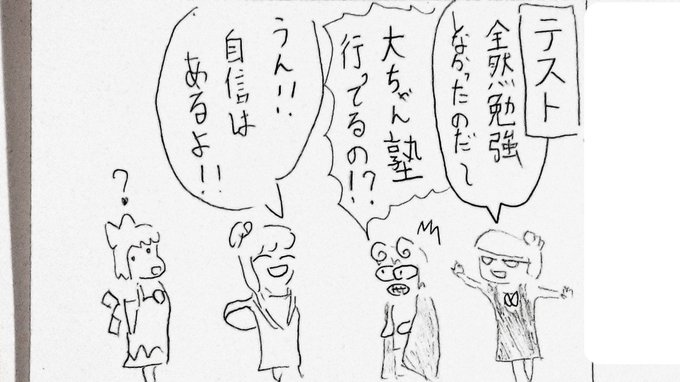 テスト
全然勉強
してなかったのだ～
大ちゃん塾
行ってるの！？
うん！！
自信は
あるよ！！
？